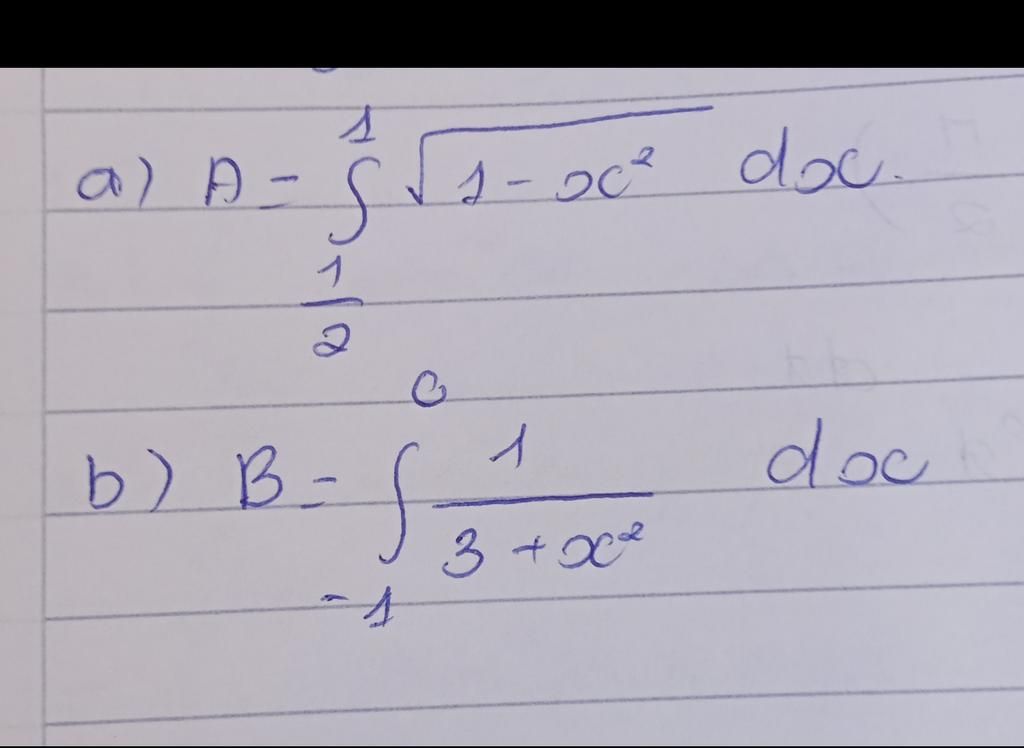 a) A = ∫_{1/2}^{1} √(1 - x²) dx.
b) B = ∫_{-1}^{0} 1/(3 + x²) dx